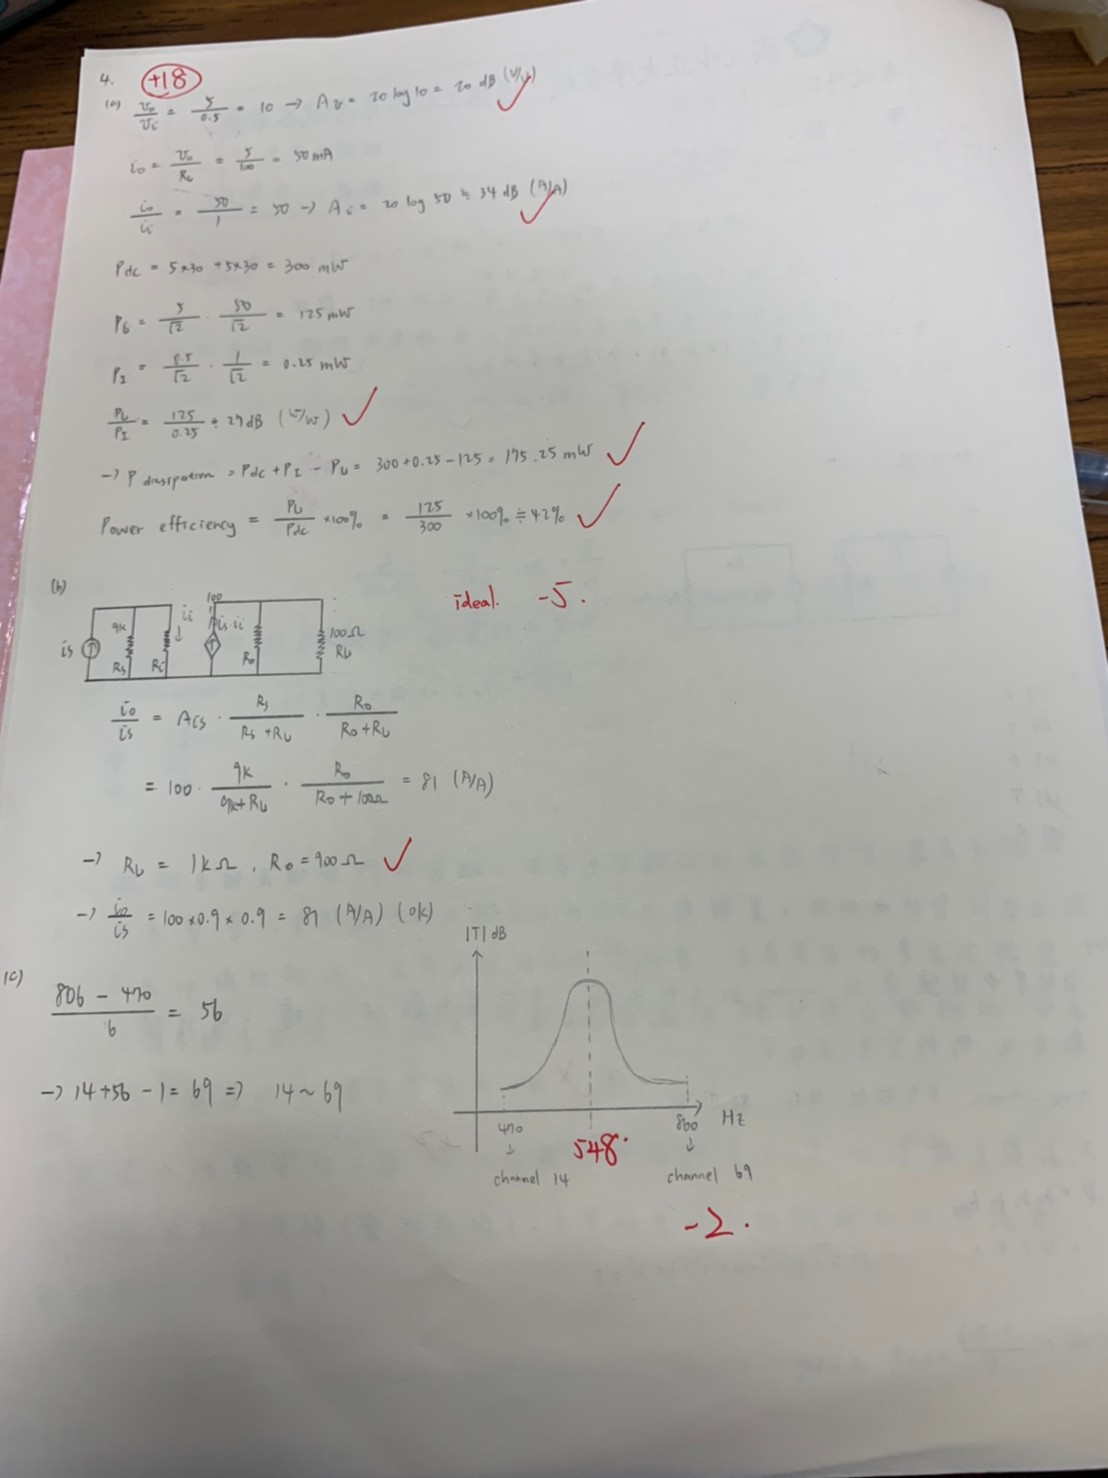 4. +18
(a) vo/vi = 5/0.5 = 10 → Av = 20 log 10 = 20 dB (V/V)
io = vo/RL = 5/100 = 50 mA
io/ii = 50/1 = 50 → Ai = 20 log 50 ≒ 34 dB (A/A)
Pdc = 5×30 + 5×30 = 300 mW
PL = 5/√2 · 50/√2 = 125 mW
PI = 0.5/√2 · 1/√2 = 0.25 mW
PL/PI = 125/0.25 ≒ 27 dB (W/W)
→ P dissipation = Pdc + PI - PL = 300 + 0.25 - 125 = 175.25 mW
Power efficiency = PL/Pdc ×100% = 125/300 ×100% ≒ 42%
(b)
ideal. -5.
is 9k Rs Ri ii 100 Ais·ii Ro 100Ω RL
io/is = Ais · Rs/(Rs + Ri) · Ro/(Ro + RL)
= 100 · 9k/(9k + Ri) · Ro/(Ro + 100Ω) = 81 (A/A)
→ Ri = 1kΩ, Ro = 900Ω
→ io/is = 100 × 0.9 × 0.9 = 81 (A/A) (ok)
(c)
(806 - 470)/6 = 56
→ 14 + 56 - 1 = 69 ⇒ 14 ~ 69
|T| dB
470 548 Hz
channel 14 channel 69
-2.